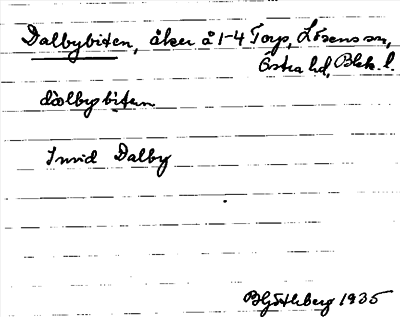 Dalbybiten, åker å 1-4 Torp, Lösens sn,
Östra hd, Blek. l.
dalbybiten
Invid Dalby
1935